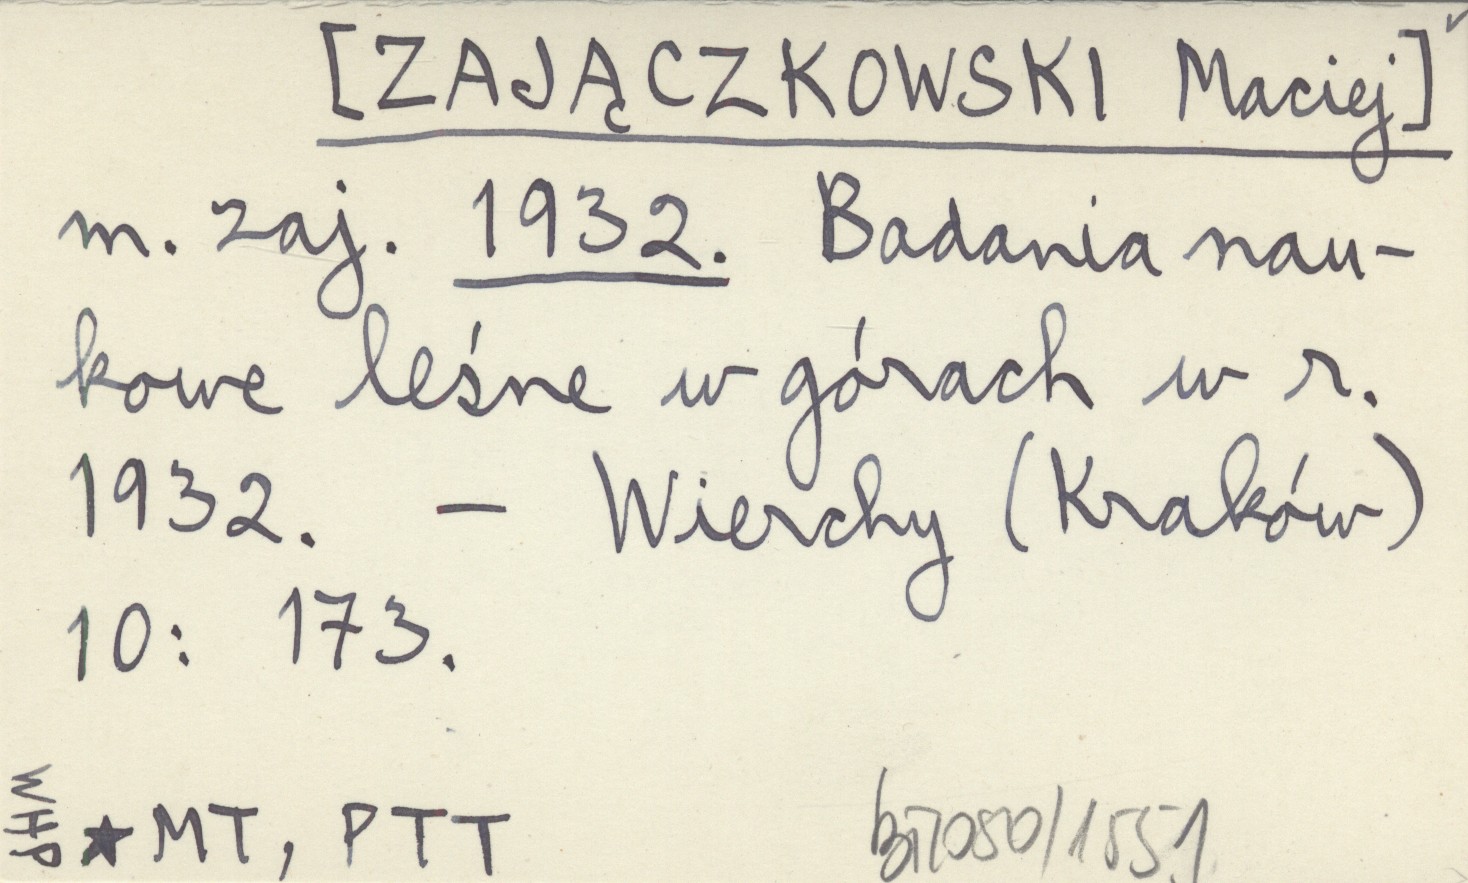 [ZAJĄCZKOWSKI Maciej]
m. zaj. 1932. Badania nau-
kowe leśne w górach w r.
1932. – Wierchy (Kraków)
10: 173.
WHP
★MT, PTT